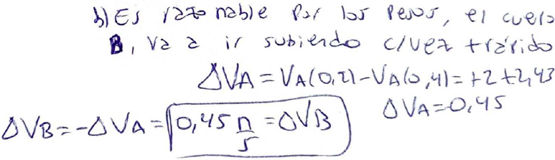 b) Es razonable por los pesos, el cuerpo
B, va a ir subiendo c/vez + rápido
ΔVA = VA(0,2) - VA(0,4) = +2 + 2,43
ΔVA = 0,45
ΔVB = -ΔVA = 0,45 m/s = ΔVB